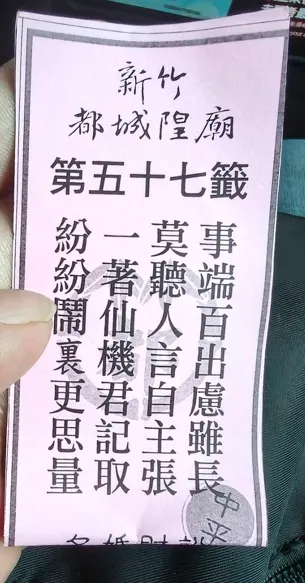 新竹
都城隍廟
第五十七籤
事端百出慮雖長
莫聽人言自主張
一著仙機君記取
紛紛鬧裏更思量
中平